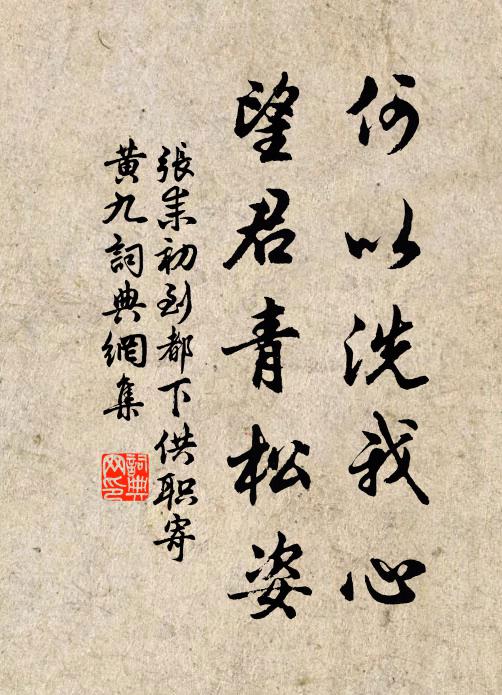 何以洗我心
望君青松姿
張耒初到都下供职寄
黄九詞典網集
詞典
网印